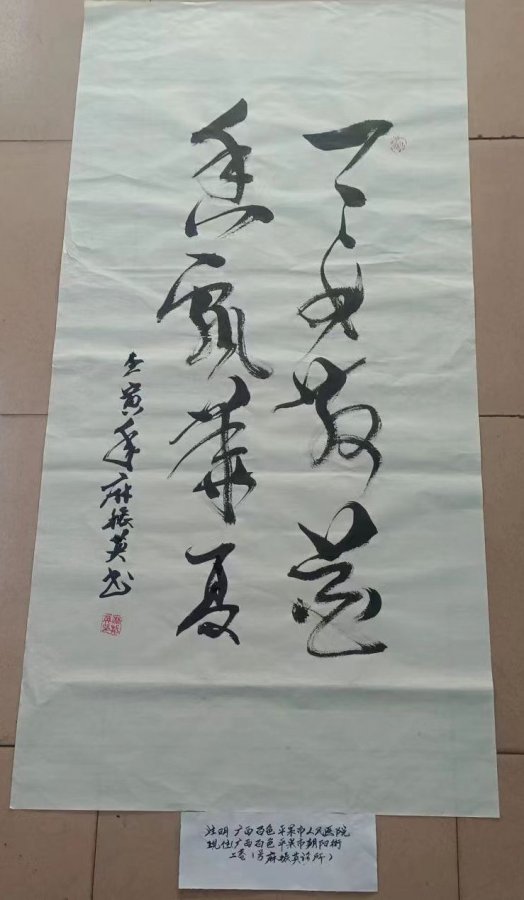 天女散花
香飘華夏
壬寅年麻振英书
注明 广西百色平果市人民医院
现住(广西百色平果市朝阳街
二巷1号麻振英诊所)